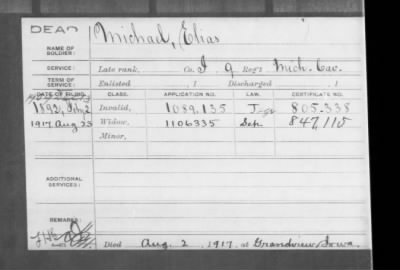 DEAD
NAME OF SOLDIER: Michael, Elias
SERVICE: Late rank, Co. I 9 Reg't Mich. Cav.
TERM OF SERVICE: Enlisted , 1 Discharged , 1
DATE OF FILING. CLASS. APPLICATION NO. LAW. CERTIFICATE NO.
1892, 2 Invalid, 1089.135 805.338
1917. Aug 25 Widow, 1106335 Sep 847,115
Minor,
ADDITIONAL SERVICES:
REMARKS:
Died Aug. 2, 1917, at Grandview, Iowa.